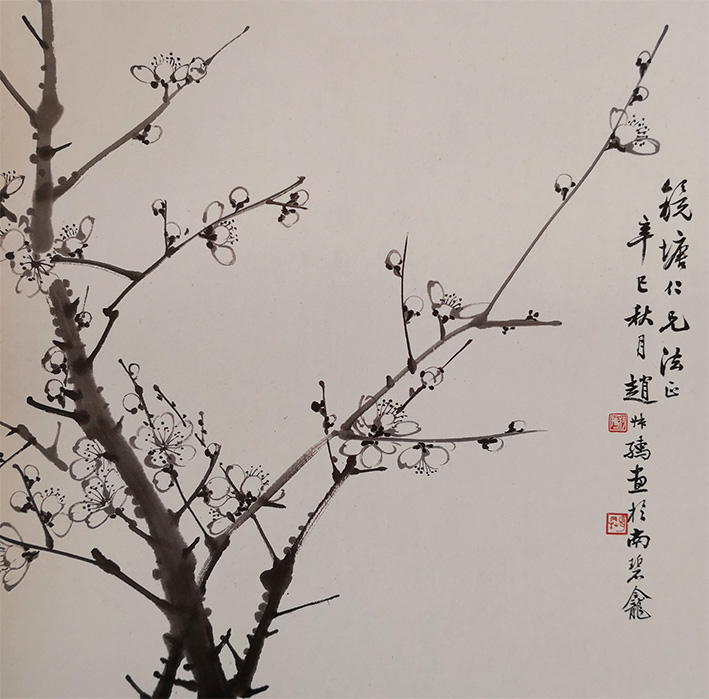 镜塘仁兄法正
辛巳秋月趙惟孺画於南碧龕